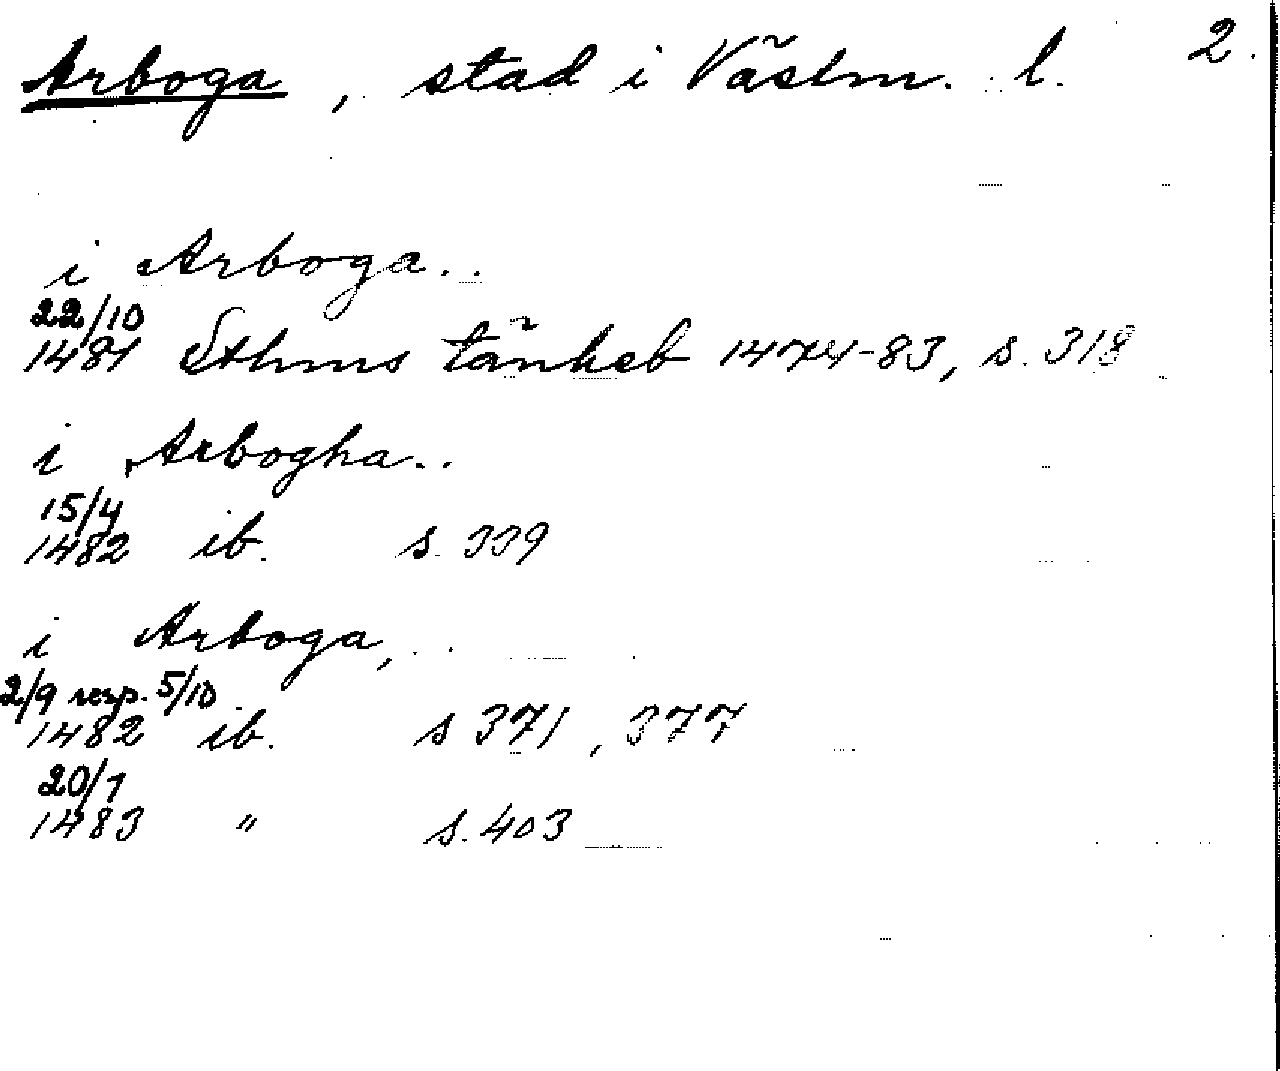 Arboga, stad i Västm. l. 2.
i Arboga..
22/10
1481 Sthms tänkeb 1474-83, s. 318
i Arbogha..
15/4
1482 ib. s. 339
i Arboga, ..
2/9 resp. 5/10
1482 ib. s 371, 377
20/1
1483 " s. 403